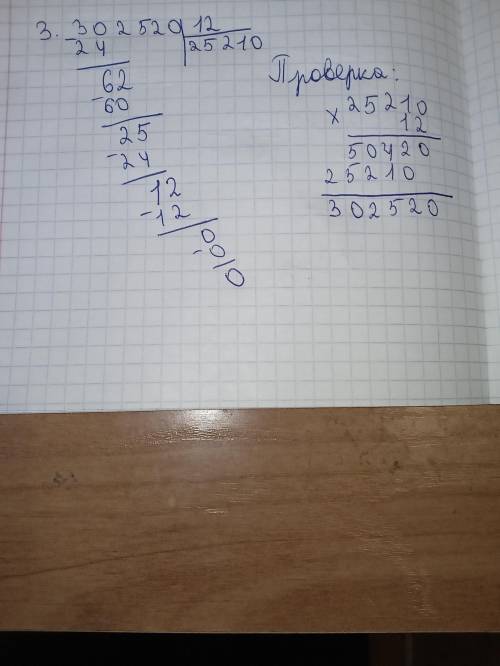 3. 302520 | 12
- 24 | 25210
62
- 60
25
- 24
12
- 12
0
- 0
0
Проверка:
x 25210
12
50420
25210
302520